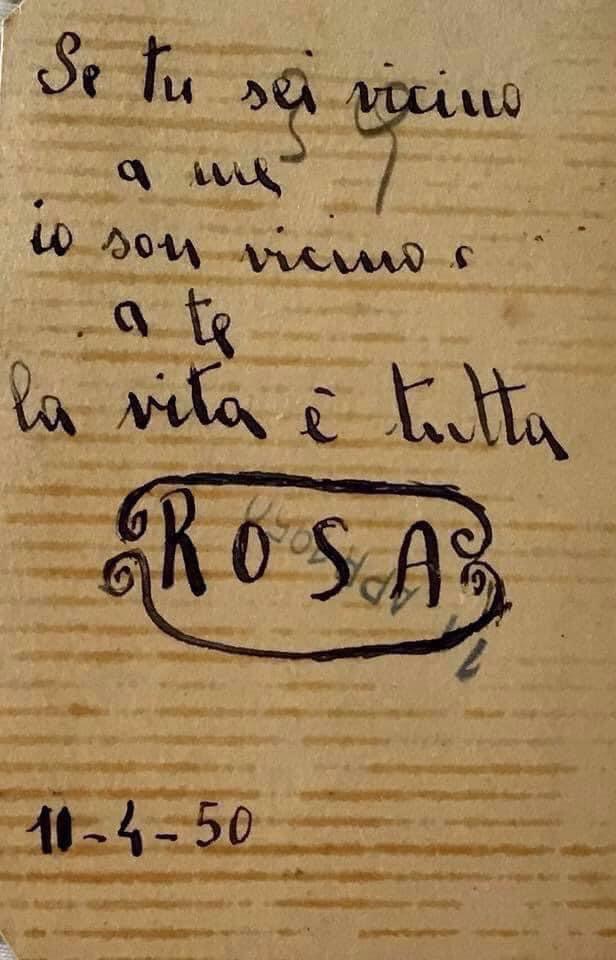 Se tu sei vicino
a me
io son vicino
a te
la vita è tutta
ROSA
11-4-50